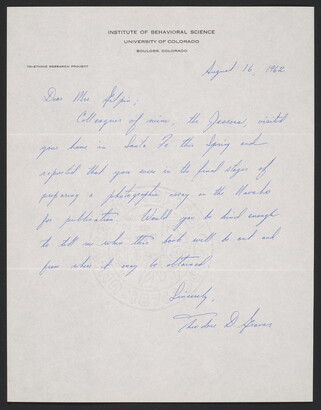 INSTITUTE OF BEHAVIORAL SCIENCE
UNIVERSITY OF COLORADO
BOULDER, COLORADO
TRI-ETHNIC RESEARCH PROJECT
August 16, 1962
Dear Mrs Gilpin,
Colleagues of mine, the Jessors, visited
your home in Santa Fe this Spring and
reported that you were in the final stages of
preparing a photographic essay on the Navaho
for publication. Would you be kind enough
to tell me when this book will be out and
from whom it may be obtained.
Sincerely,
Theodore D. Graves